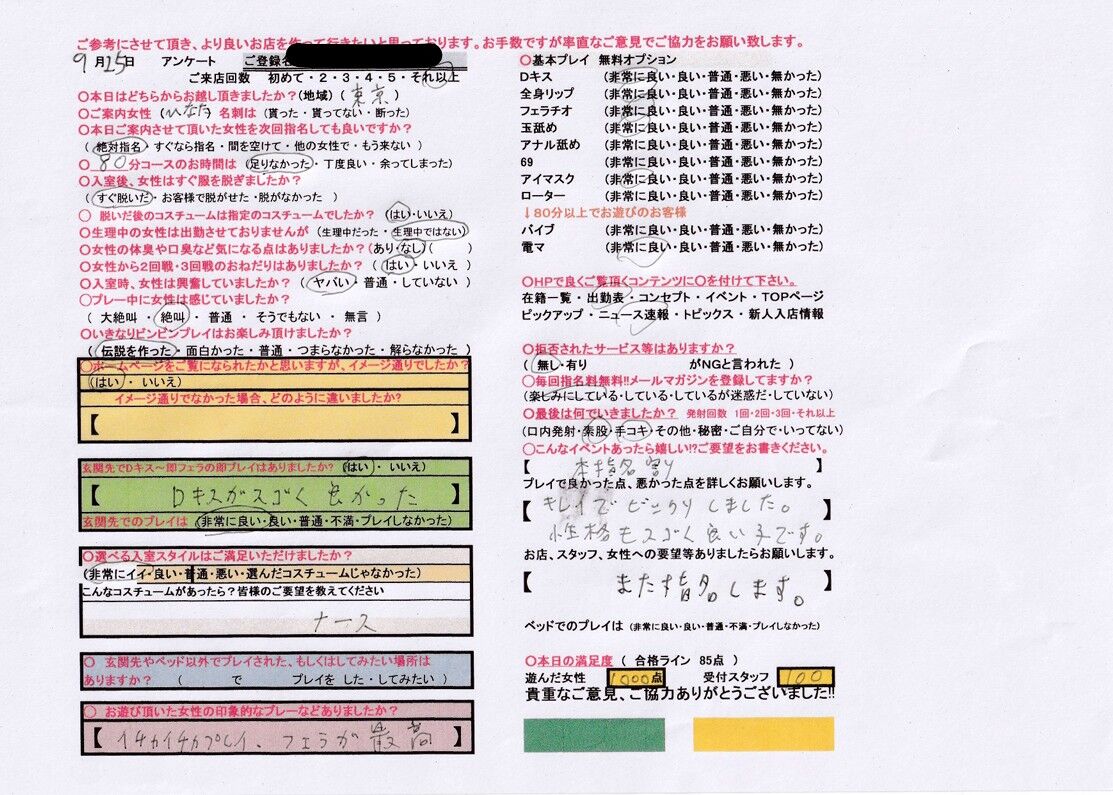 ご参考にさせて頂き、より良いお店を作って行きたいと思っております。お手数ですが率直なご意見でご協力をお願い致します。
9月25日 アンケート ご登録名
ご来店回数 初めて・2・3・4・5・それ以上
〇本日はどちらからお越し頂きましたか?(地域)( 東京 )
〇ご案内女性 (ひなた) 名刺は (貰った・貰ってない・断った)
〇本日ご案内させて頂いた女性を次回指名しても良いですか?
( 絶対指名・すぐなら指名・間を空けて・他の女性で・もう来ない )
〇 80分コースのお時間は (足りなかった・丁度良い・余ってしまった)
〇入室後、女性はすぐ服を脱ぎましたか?
( すぐ脱いだ・お客様で脱がせた・脱がなかった )
〇 脱いだ後のコスチュームは指定のコスチュームでしたか? (はい・いいえ)
〇生理中の女性は出勤させておりませんが (生理中だった・生理中ではない)
〇女性の体臭や口臭など気になる点はありましたか?(あり・なし)( )
〇女性から2回戦・3回戦のおねだりはありましたか? ( はい・いいえ )
〇入室時、女性は興奮していましたか? ( ヤバい・普通・していない )
〇プレー中に女性は感じていましたか?
( 大絶叫 ・ 絶叫 ・ 普通 ・ そうでもない ・ 無言 )
〇いきなりビンビンプレイはお楽しみ頂けましたか?
( 伝説を作った・面白かった・普通・つまらなかった・解らなかった )
〇ホームページをご覧になられたかと思いますが、イメージ通りでしたか?
(はい ・ いいえ)
イメージ通りでなかった場合、どのように違いましたか?
【 】
玄関先でDキス～即フェラの即プレイはありましたか? (はい ・ いいえ)
【 Dキスがスゴく良かった 】
玄関先でのプレイは (非常に良い・良い・普通・不満・プレイしなかった)
〇選べる入室スタイルはご満足いただけましたか?
(非常にイイ・良い・普通・悪い・選んだコスチュームじゃなかった)
こんなコスチュームがあったら?皆様のご要望を教えてください
ナース
〇 玄関先やベッド以外でプレイされた、もしくはしてみたい場所は
ありますか? ( で プレイを した・してみたい )
〇 お遊び頂いた女性の印象的なプレーなどありましたか?
【 イチャイチャプレイ、フェラが最高 】
〇基本プレイ 無料オプション
Dキス (非常に良い・良い・普通・悪い・無かった)
全身リップ (非常に良い・良い・普通・悪い・無かった)
フェラチオ (非常に良い・良い・普通・悪い・無かった)
玉舐め (非常に良い・良い・普通・悪い・無かった)
アナル舐め (非常に良い・良い・普通・悪い・無かった)
69 (非常に良い・良い・普通・悪い・無かった)
アイマスク (非常に良い・良い・普通・悪い・無かった)
ローター (非常に良い・良い・普通・悪い・無かった)
↓80分以上でお遊びのお客様
バイブ (非常に良い・良い・普通・悪い・無かった)
電マ (非常に良い・良い・普通・悪い・無かった)
〇HPで良くご覧頂くコンテンツに〇を付けて下さい。
在籍一覧・出勤表・コンセプト・イベント・TOPページ
ピックアップ・ニュース速報・トピックス・新人入店情報
〇拒否されたサービス等はありますか?
( 無し・有り がNGと言われた )
〇毎回指名料無料!!メールマガジンを登録してますか?
(楽しみにしている・している・しているが迷惑だ・していない)
〇最後は何でいきましたか? 発射回数 1回・2回・3回・それ以上
(口内発射・素股・手コキ・その他・秘密・ご自分で・いってない)
〇こんなイベントあったら嬉しい!?ご要望をお書きください。
【 本指名割り 】
プレイで良かった点、悪かった点を詳しくお願いします。
【 キレイでビックリしました。
性格もスゴく良い子です。 】
お店、スタッフ、女性への要望等ありましたらお願いします。
【 また指名します。 】
ベッドでのプレイは (非常に良い・良い・普通・不満・プレイしなかった)
〇本日の満足度 ( 合格ライン 85点 )
遊んだ女性 1000点 受付スタッフ 100
貴重なご意見、ご協力ありがとうございました!!